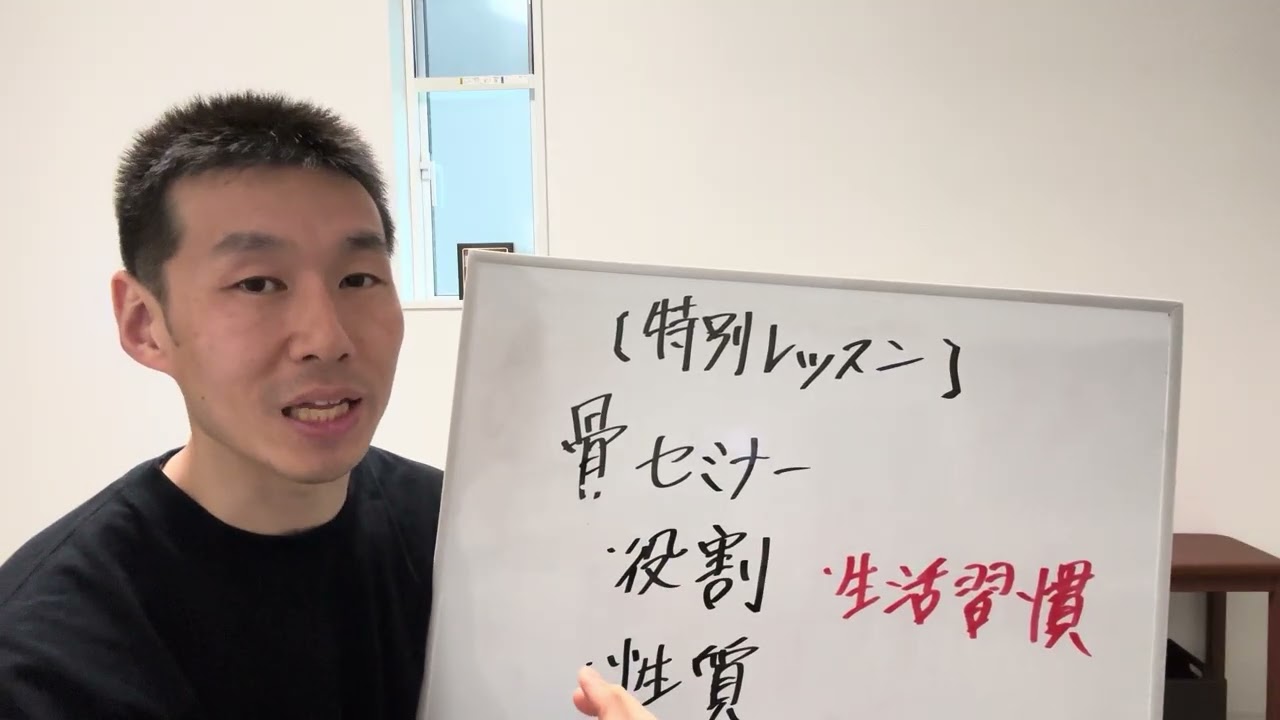 〔特別レッスン〕
骨セミナー
・役割
・生活習慣
・性質